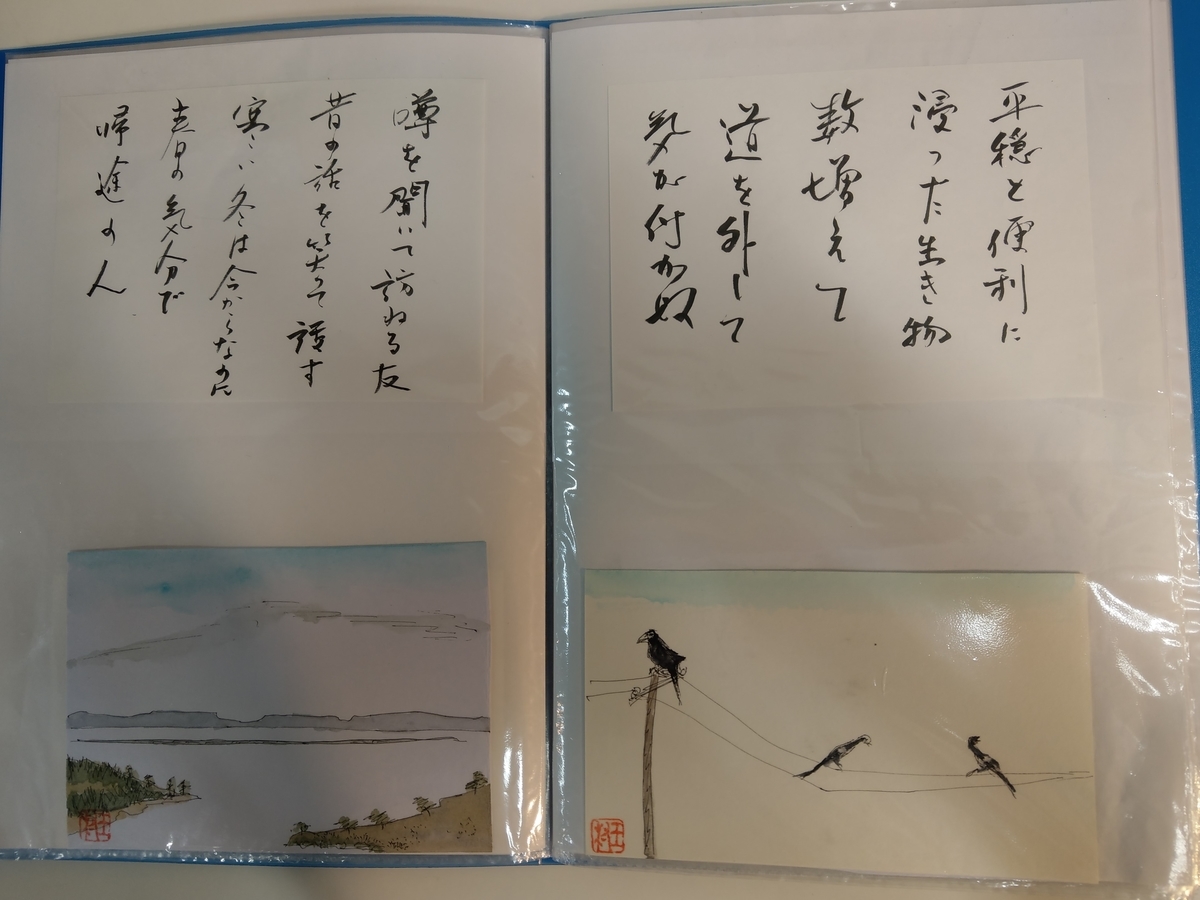 平穏と便利に
浸った生き物
数増えて
道を外して
気が付かぬ
噂を聞いて訪ねる友
昔の話を笑って話す
寒い冬は今からなのに
春の気分で
帰途の人